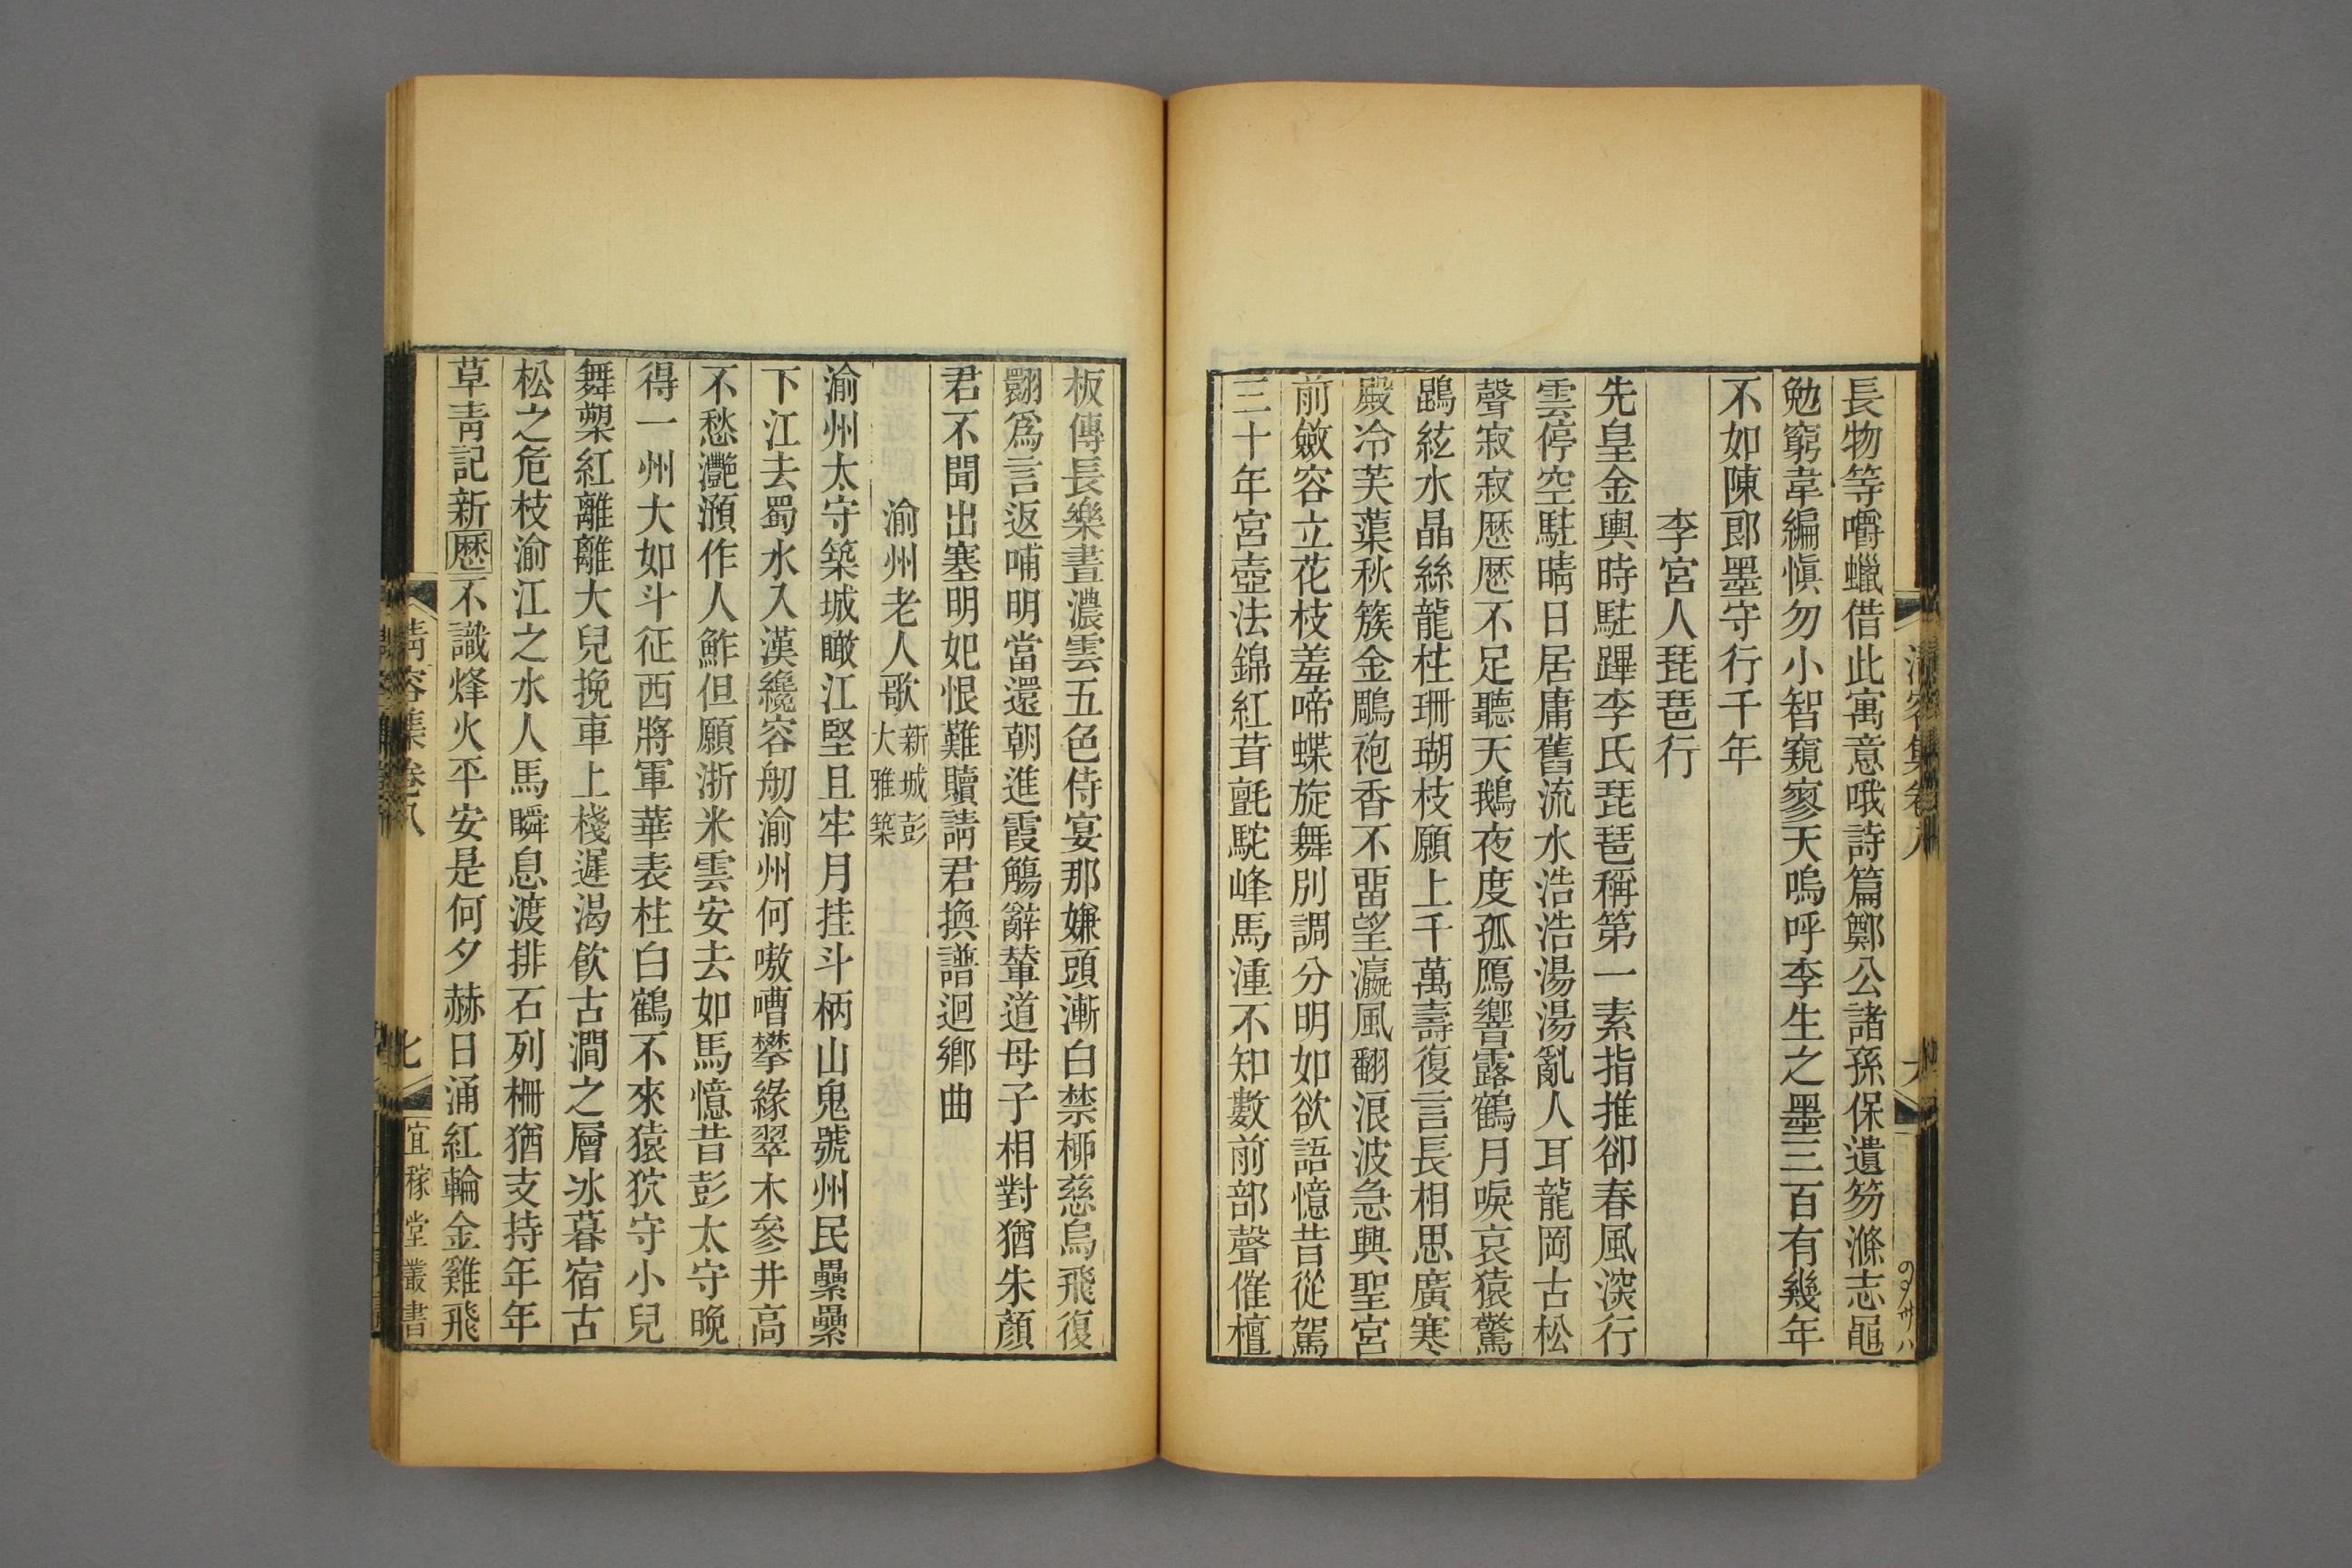 長物等嚼蠟借此寓意哦詩篇鄭公諸孫保遺笏滌志黽
勉窮韋編愼勿小智窺寥天嗚呼李生之墨三百有幾年
不如陳郎墨守行千年
李宮人琵琶行
先皇金輿時駐蹕李氏琵琶稱第一素指推卻春風深行
雲停空駐晴日居庸舊流水浩浩湯湯亂人耳龍岡古松
聲寂寂歴歴不足聽天鵝夜度孤鴈響露鶴月唳哀猿驚
鵾絃水晶絲龍柱珊瑚枝願上千萬壽復言長相思廣寒
殿冷芙蕖秋簇金雕袍香不畱望瀛風翻浪波急興聖宮
前斂容立花枝羞啼蝶旋舞別調分明如欲語憶昔從駕
三十年宮壺法錦紅茸氈駝峰馬湩不知數前部聲催檀
板傳長樂晝濃雲五色侍宴那嫌頭漸白禁柳慈烏飛復
翾爲言返哺明當還朝進霞觴辭輦道母子相對猶朱顏
君不聞出塞明妃恨難贖請君換譜迴鄉曲
渝州老人歌 新城彭大雅築
渝州太守築城瞰江堅且牢月挂斗柄山鬼號州民纍纍
下江去蜀水入漢纔容舠渝州何嗷嘈攀緣翠木參井高
不愁灩澦作人鮓但願浙米雲安去如馬憶昔彭太守晚
得一州大如斗征西將軍華表柱白鶴不來猿狖守小兒
舞槊紅離離大兒挽車上棧遲渴飮古澗之層冰暮宿古
松之危枝渝江之水人馬瞬息渡排石列柵猶支持年年
草靑記新歴不識烽火平安是何夕赫日涌紅輪金雞飛
淸容集卷八
宜稼堂叢書